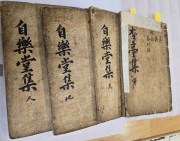 亭集
自樂堂集 天
自樂堂集 地
自樂堂集 人